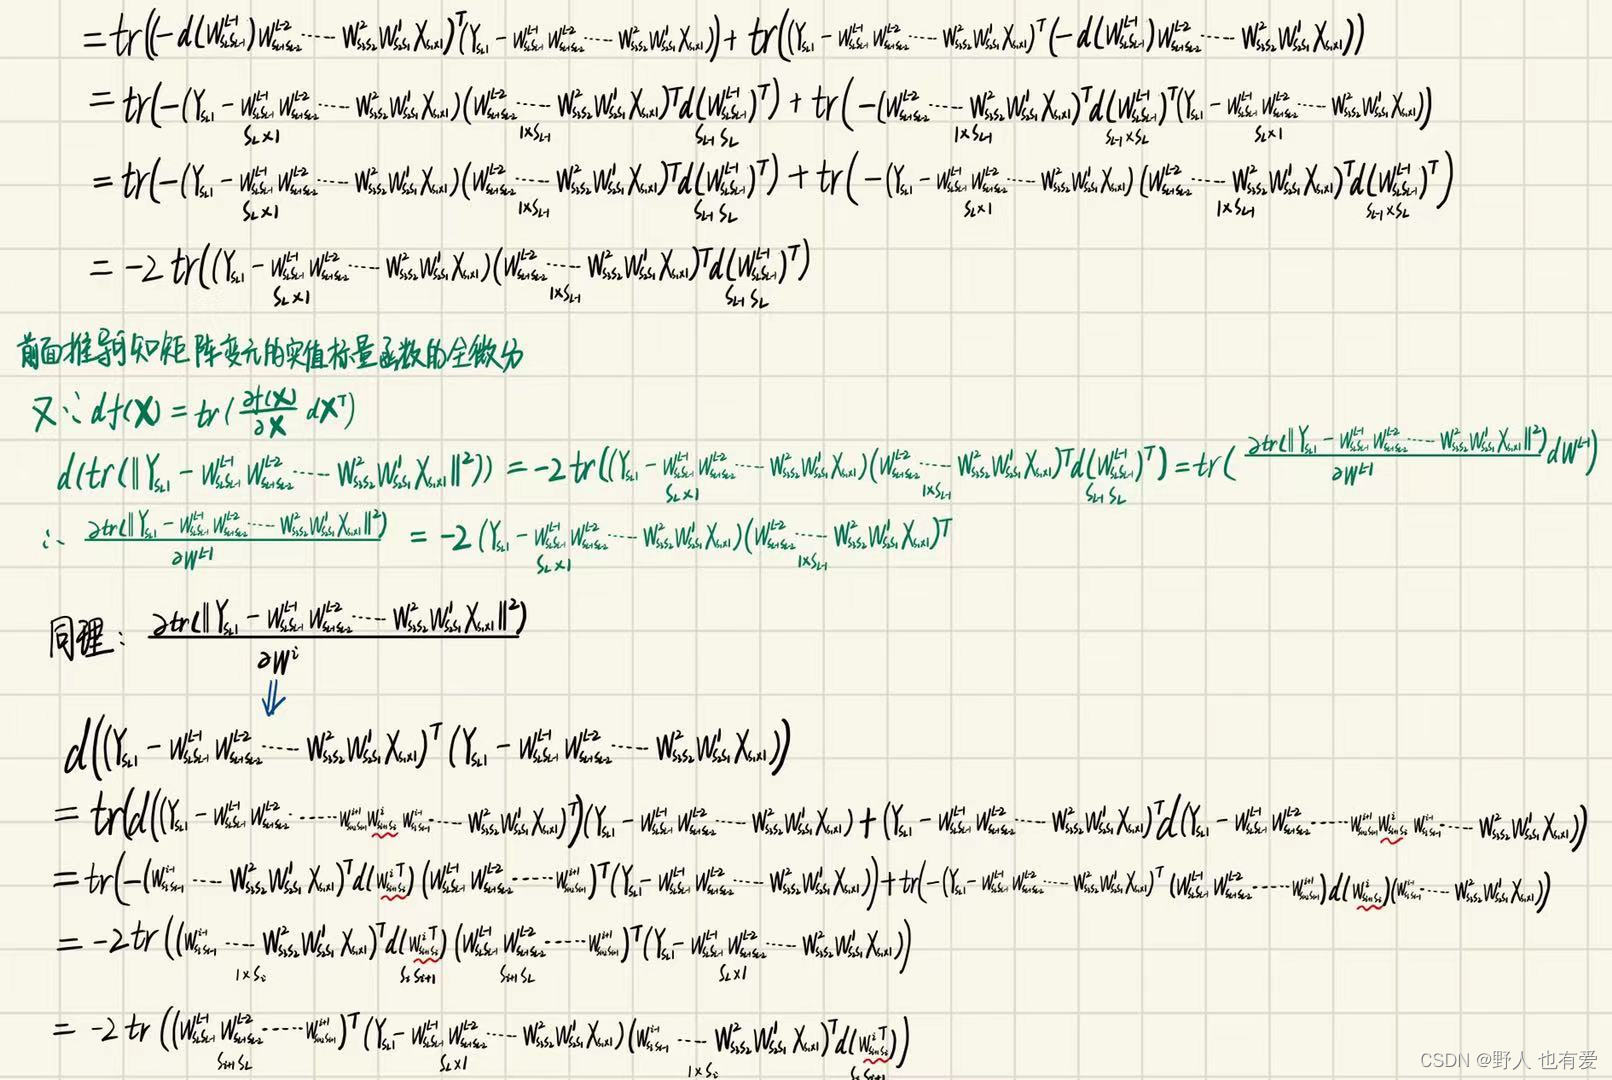 = tr((-d(W^{L-1}_{S_L S_{L-1}}) W^{L-2}_{S_{L-1} S_{L-2}} ······ W^2_{S_3 S_2} W^1_{S_2 S_1} X_{S_1×1})^T (Y_{S_L 1} - W^{L-1}_{S_L S_{L-1}} W^{L-2}_{S_{L-1} S_{L-2}} ······ W^2_{S_3 S_2} W^1_{S_2 S_1} X_{S_1×1})) + tr((Y_{S_L 1} - W^{L-1}_{S_L S_{L-1}} W^{L-2}_{S_{L-1} S_{L-2}} ······ W^2_{S_3 S_2} W^1_{S_2 S_1} X_{S_1×1})^T (-d(W^{L-1}_{S_L S_{L-1}}) W^{L-2}_{S_{L-1} S_{L-2}} ······ W^2_{S_3 S_2} W^1_{S_2 S_1} X_{S_1×1}))
= tr(-(Y_{S_L 1} - W^{L-1}_{S_L S_{L-1}} W^{L-2}_{S_{L-1} S_{L-2}} ······ W^2_{S_3 S_2} W^1_{S_2 S_1} X_{S_1×1}) (W^{L-2}_{S_{L-1} S_{L-2}} ······ W^2_{S_3 S_2} W^1_{S_2 S_1} X_{S_1×1})^T d(W^{L-1}_{S_L S_{L-1}})^T) + tr(-(W^{L-2}_{S_{L-1} S_{L-2}} ······ W^2_{S_3 S_2} W^1_{S_2 S_1} X_{S_1×1})^T d(W^{L-1}_{S_L S_{L-1}})^T (Y_{S_L 1} - W^{L-1}_{S_L S_{L-1}} W^{L-2}_{S_{L-1} S_{L-2}} ······ W^2_{S_3 S_2} W^1_{S_2 S_1} X_{S_1×1}))
S_L×1 1×S_{L-1} S_{L-1} S_L 1×S_{L-1} S_{L-1}×S_L S_L×1
= tr(-(Y_{S_L 1} - W^{L-1}_{S_L S_{L-1}} W^{L-2}_{S_{L-1} S_{L-2}} ······ W^2_{S_3 S_2} W^1_{S_2 S_1} X_{S_1×1}) (W^{L-2}_{S_{L-1} S_{L-2}} ······ W^2_{S_3 S_2} W^1_{S_2 S_1} X_{S_1×1})^T d(W^{L-1}_{S_L S_{L-1}})^T) + tr(-(Y_{S_L 1} - W^{L-1}_{S_L S_{L-1}} W^{L-2}_{S_{L-1} S_{L-2}} ······ W^2_{S_3 S_2} W^1_{S_2 S_1} X_{S_1×1}) (W^{L-2}_{S_{L-1} S_{L-2}} ······ W^2_{S_3 S_2} W^1_{S_2 S_1} X_{S_1×1})^T d(W^{L-1}_{S_L S_{L-1}})^T)
S_L×1 1×S_{L-1} S_{L-1} S_L S_L×1 1×S_{L-1} S_{L-1}×S_L
= -2 tr((Y_{S_L 1} - W^{L-1}_{S_L S_{L-1}} W^{L-2}_{S_{L-1} S_{L-2}} ······ W^2_{S_3 S_2} W^1_{S_2 S_1} X_{S_1×1}) (W^{L-2}_{S_{L-1} S_{L-2}} ······ W^2_{S_3 S_2} W^1_{S_2 S_1} X_{S_1×1})^T d(W^{L-1}_{S_L S_{L-1}})^T)
S_L×1 1×S_{L-1} S_{L-1} S_L
前面推导可知矩阵变元的实值标量函数的全微分
又∵ df(X) = tr(∂f(X)/∂X dX^T)
d(tr(‖Y_{S_L 1} - W^{L-1}_{S_L S_{L-1}} W^{L-2}_{S_{L-1} S_{L-2}} ······ W^2_{S_3 S_2} W^1_{S_2 S_1} X_{S_1×1}‖^2)) = -2 tr((Y_{S_L 1} - W^{L-1}_{S_L S_{L-1}} W^{L-2}_{S_{L-1} S_{L-2}} ······ W^2_{S_3 S_2} W^1_{S_2 S_1} X_{S_1×1}) (W^{L-2}_{S_{L-1} S_{L-2}} ······ W^2_{S_3 S_2} W^1_{S_2 S_1} X_{S_1×1})^T d(W^{L-1}_{S_L S_{L-1}})^T) = tr(∂tr(‖Y_{S_L 1} - W^{L-1}_{S_L S_{L-1}} W^{L-2}_{S_{L-1} S_{L-2}} ······ W^2_{S_3 S_2} W^1_{S_2 S_1} X_{S_1×1}‖^2)/∂W^{L-1} dW^{L-1})
S_L×1 1×S_{L-1} S_{L-1} S_L
∴ ∂tr(‖Y_{S_L 1} - W^{L-1}_{S_L S_{L-1}} W^{L-2}_{S_{L-1} S_{L-2}} ······ W^2_{S_3 S_2} W^1_{S_2 S_1} X_{S_1×1}‖^2)/∂W^{L-1} = -2 (Y_{S_L 1} - W^{L-1}_{S_L S_{L-1}} W^{L-2}_{S_{L-1} S_{L-2}} ······ W^2_{S_3 S_2} W^1_{S_2 S_1} X_{S_1×1}) (W^{L-2}_{S_{L-1} S_{L-2}} ······ W^2_{S_3 S_2} W^1_{S_2 S_1} X_{S_1×1})^T
S_L×1 1×S_{L-1}
同理: ∂tr(‖Y_{S_L 1} - W^{L-1}_{S_L S_{L-1}} W^{L-2}_{S_{L-1} S_{L-2}} ······ W^2_{S_3 S_2} W^1_{S_2 S_1} X_{S_1×1}‖^2)/∂W^i
⇓
d((Y_{S_L 1} - W^{L-1}_{S_L S_{L-1}} W^{L-2}_{S_{L-1} S_{L-2}} ······ W^2_{S_3 S_2} W^1_{S_2 S_1} X_{S_1×1})^T (Y_{S_L 1} - W^{L-1}_{S_L S_{L-1}} W^{L-2}_{S_{L-1} S_{L-2}} ······ W^2_{S_3 S_2} W^1_{S_2 S_1} X_{S_1×1}))
= tr(d((Y_{S_L 1} - W^{L-1}_{S_L S_{L-1}} W^{L-2}_{S_{L-1} S_{L-2}} ······ W^{i+1}_{S_{i+2} S_{i+1}} W^i_{S_{i+1} S_i} W^{i-1}_{S_i S_{i-1}} ······ W^2_{S_3 S_2} W^1_{S_2 S_1} X_{S_1×1})^T) (Y_{S_L 1} - W^{L-1}_{S_L S_{L-1}} W^{L-2}_{S_{L-1} S_{L-2}} ······ W^2_{S_3 S_2} W^1_{S_2 S_1} X_{S_1×1}) + (Y_{S_L 1} - W^{L-1}_{S_L S_{L-1}} W^{L-2}_{S_{L-1} S_{L-2}} ······ W^2_{S_3 S_2} W^1_{S_2 S_1} X_{S_1×1})^T d(Y_{S_L 1} - W^{L-1}_{S_L S_{L-1}} W^{L-2}_{S_{L-1} S_{L-2}} ······ W^{i+1}_{S_{i+2} S_{i+1}} W^i_{S_{i+1} S_i} W^{i-1}_{S_i S_{i-1}} ······ W^2_{S_3 S_2} W^1_{S_2 S_1} X_{S_1×1}))
= tr(-(W^{i-1}_{S_i S_{i-1}} ······ W^2_{S_3 S_2} W^1_{S_2 S_1} X_{S_1×1})^T d(W^{iT}_{S_{i+1} S_i}) (W^{L-1}_{S_L S_{L-1}} W^{L-2}_{S_{L-1} S_{L-2}} ······ W^{i+1}_{S_{i+2} S_{i+1}})^T (Y_{S_L 1} - W^{L-1}_{S_L S_{L-1}} W^{L-2}_{S_{L-1} S_{L-2}} ······ W^2_{S_3 S_2} W^1_{S_2 S_1} X_{S_1×1})) + tr(-(Y_{S_L 1} - W^{L-1}_{S_L S_{L-1}} W^{L-2}_{S_{L-1} S_{L-2}} ······ W^2_{S_3 S_2} W^1_{S_2 S_1} X_{S_1×1})^T (W^{L-1}_{S_L S_{L-1}} W^{L-2}_{S_{L-1} S_{L-2}} ······ W^{i+1}_{S_{i+2} S_{i+1}}) d(W^i_{S_{i+1} S_i}) (W^{i-1}_{S_i S_{i-1}} ······ W^2_{S_3 S_2} W^1_{S_2 S_1} X_{S_1×1}))
= -2 tr((W^{i-1}_{S_i S_{i-1}} ······ W^2_{S_3 S_2} W^1_{S_2 S_1} X_{S_1×1})^T d(W^{iT}_{S_{i+1} S_i}) (W^{L-1}_{S_L S_{L-1}} W^{L-2}_{S_{L-1} S_{L-2}} ······ W^{i+1}_{S_{i+2} S_{i+1}})^T (Y_{S_L 1} - W^{L-1}_{S_L S_{L-1}} W^{L-2}_{S_{L-1} S_{L-2}} ······ W^2_{S_3 S_2} W^1_{S_2 S_1} X_{S_1×1}))
1×S_i S_i S_{i+1} S_{i+1} S_L S_L×1
= -2 tr((W^{L-1}_{S_L S_{L-1}} W^{L-2}_{S_{L-1} S_{L-2}} ······ W^{i+1}_{S_{i+2} S_{i+1}})^T (Y_{S_L 1} - W^{L-1}_{S_L S_{L-1}} W^{L-2}_{S_{L-1} S_{L-2}} ······ W^2_{S_3 S_2} W^1_{S_2 S_1} X_{S_1×1}) (W^{i-1}_{S_i S_{i-1}} ······ W^2_{S_3 S_2} W^1_{S_2 S_1} X_{S_1×1})^T d(W^{iT}_{S_{i+1} S_i}))
S_{i+1} S_L S_L×1 1×S_i S_i S_{i+1}
CSDN @野人 也有爱